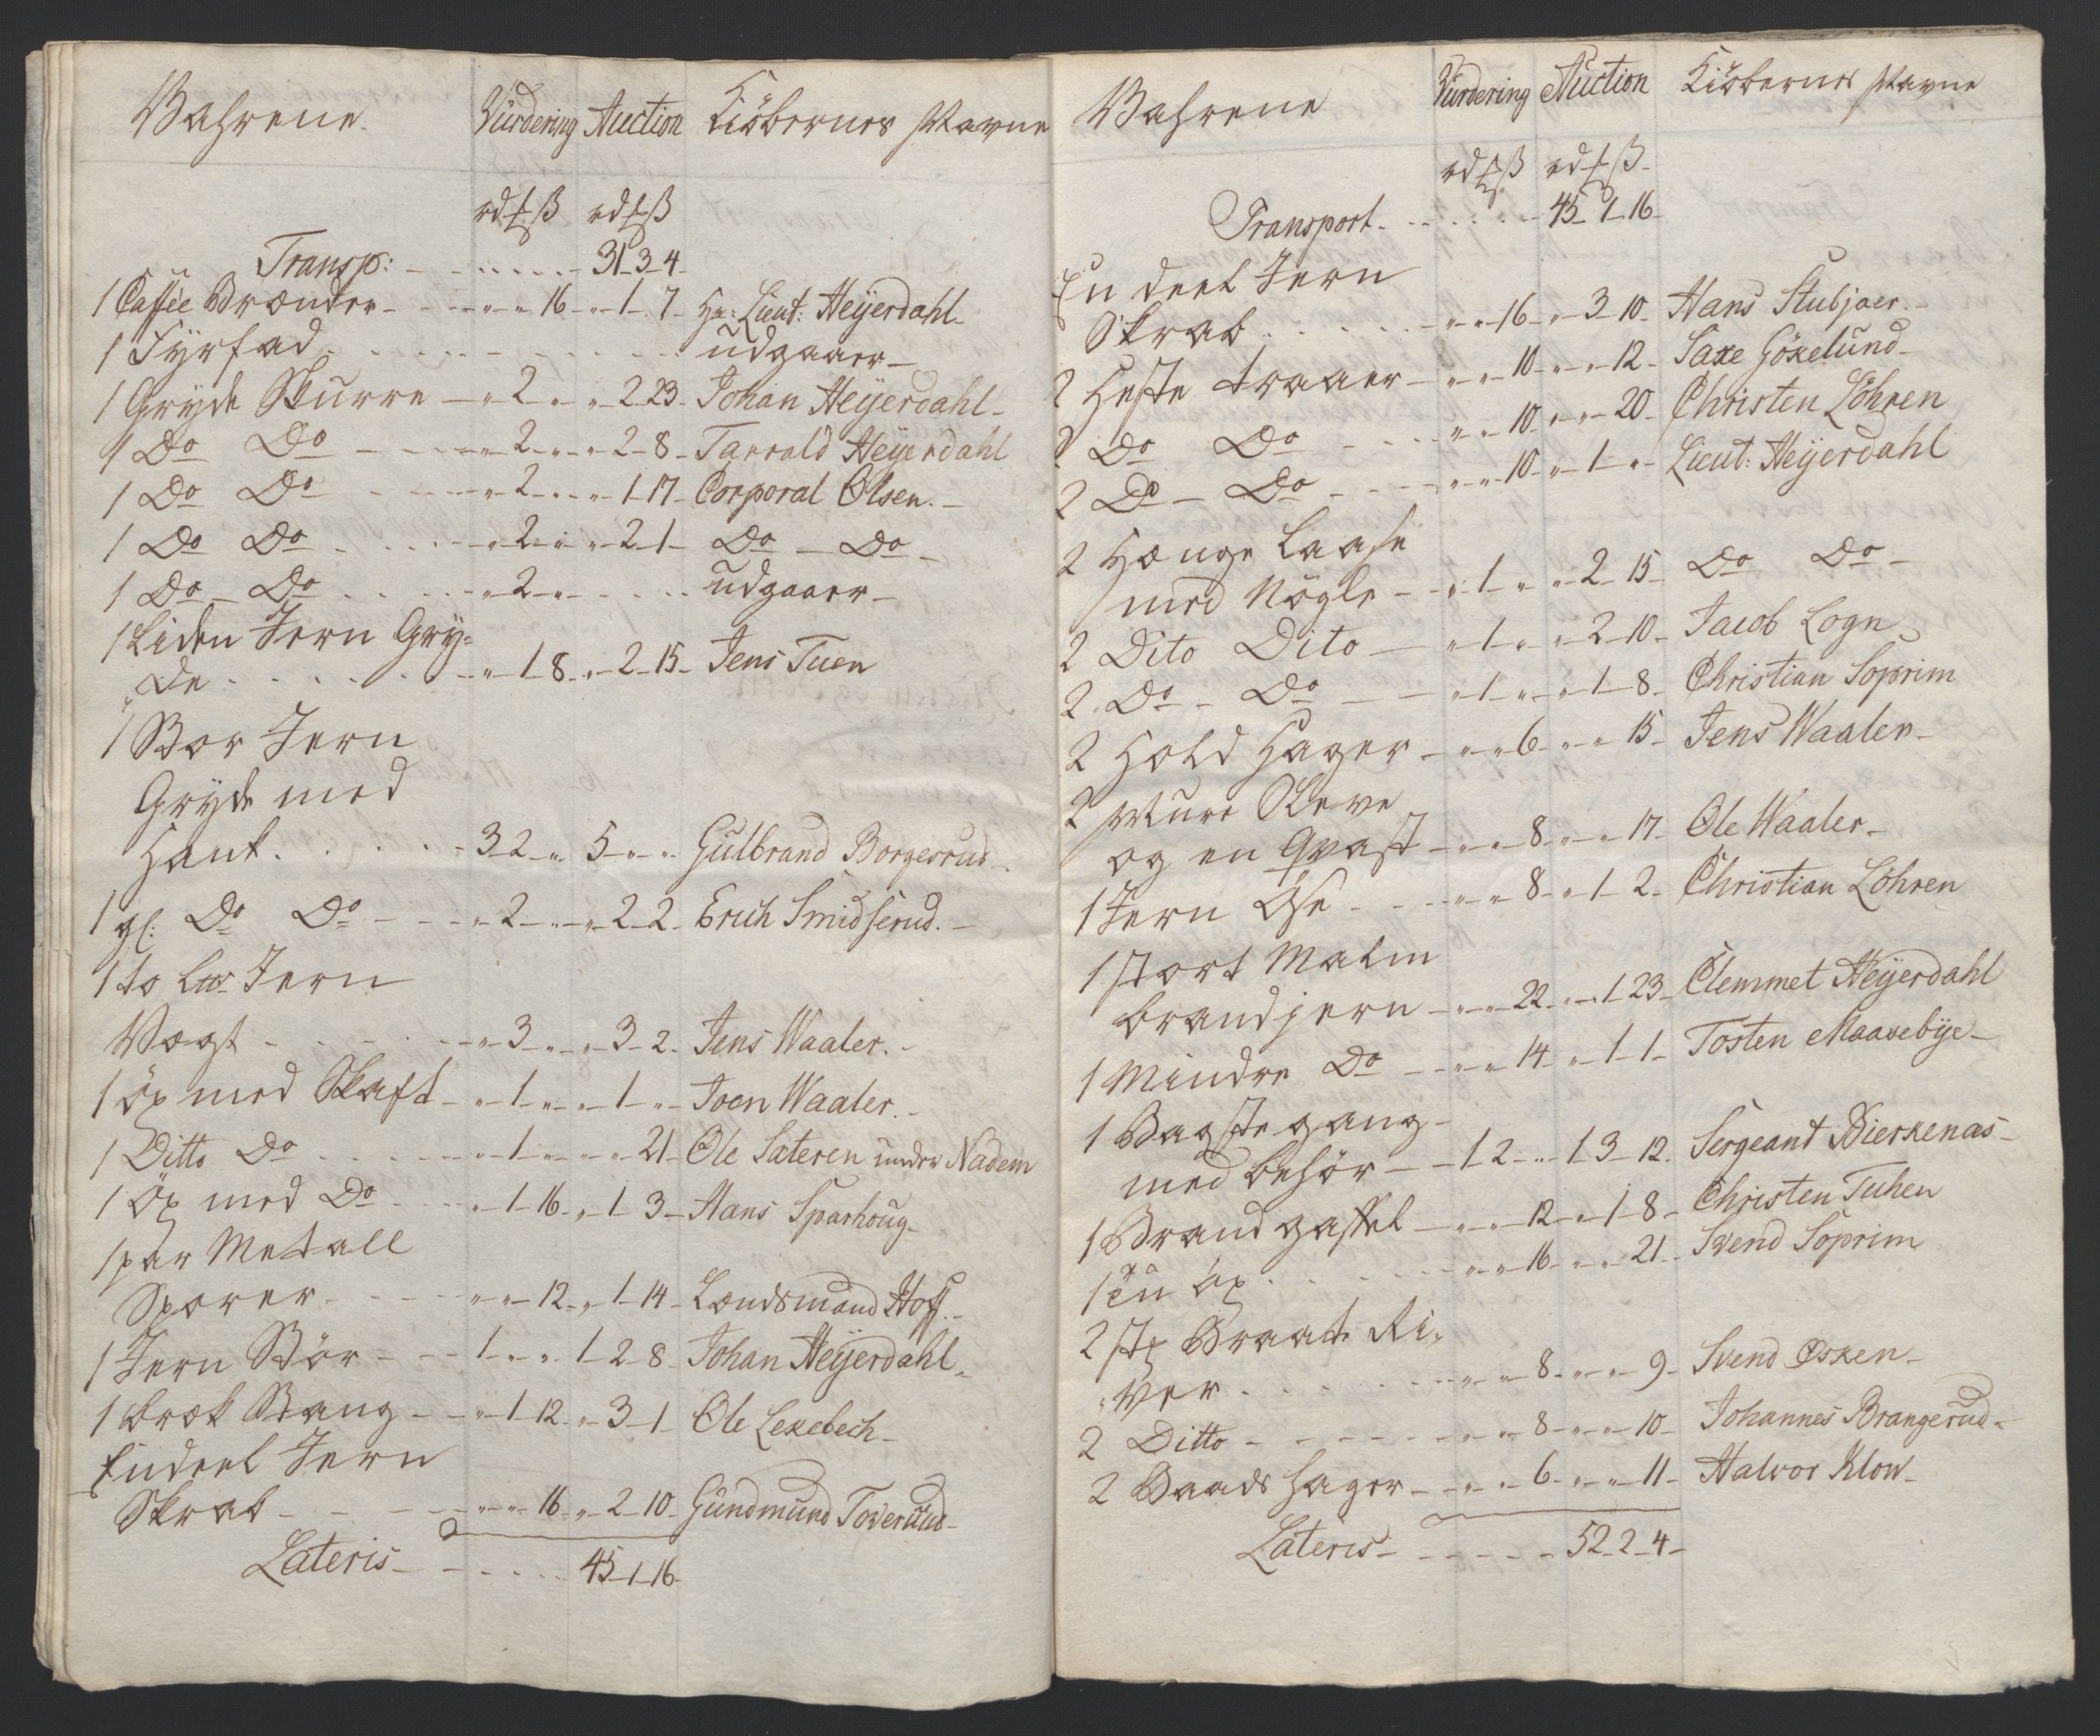 Vahrene. Vurdering Auction Kiöbernes Navne
rd ƒ ß rd ƒ ß
Transp: - - - - - - 31 - 3 - 4 -
1 Caffee Brænder - - " - " - 16 - " - 1 - 7 - Hr: Lieut: Heyerdahl -
1 Fyrfad - - - - - - udgaaer -
1 Gryde Skurre - " 2 - " - " - 2 - 23 - Johan Heyerdahl -
1 Do Do - - - " - 2 - " - " - 2 - 8 - Tarrald Heyerdahl
1 Do Do - - - " - 2 - " - " - 1 - 17 - Corporal Olsen. -
1 Do Do - - - " - 2 - " - " - 2 - 1 - Do - Do -
1 Do - Do - - - " - 2 - " - - - udgaaer -
1 Liden Jern Gry=
de - - - - " - 1 - 8 - " - 2 - 15 - Jens Tuen
1 Stor Jern
Gryde med
Hank - - - - 3 - 2 - " - 5 - " - " - Gulbrand Borgesrud -
1 gl: Do Do - - - " - 2 - " - " - 2 - 2 - Erich Smidserud. -
1 to Jern
Vægt - - - - " - 3 - " - " - 3 - 2 - Jens Waaler. -
1 Öx med Skaft - " - 1 - " - " - 1 - " - Joen Waaler. -
1 Ditto Do - - - " - 1 - " - " - " - 21 - Ole Sateren under Nadem
1 Öx med Do - - " - 1 - 16 - " - 1 - 3 - Hans Sparhoug -
1 par Metall
Sporer - - - - " - " - 12 - " - 1 - 14 - Lændsmand Hoff. -
1 Jern Bör - - - 1 - " - " - 1 - 2 - 8 - Johan Heyerdahl -
1 bræk Stang - - " - 1 - 12 - " - 3 - 1 - Ole Lekebech -
En deel Jern
Skrab - - - - " - " - 16 - " - 2 - 10 - Gundmund Toverud -
Lateris - - - - - 45 - 1 - 16 -
Vahrene Vurdering Auction Kiöbernes Navne
rd ƒ ß rd ƒ ß
Transport - - - - - 45 - 1 - 16 -
En deel Jern
Skrab - - - - " - " - 16 - " - 3 - 10 - Hans Stubjaer. -
2 Heste traaer - " - " - 10 - " - " - 12 - Saxe Göxelund -
2 Do Do - - - " - " - 10 - " - " - 20 - Christen Löhren
2 Do - Do - - - " - " - 10 - " - 1 - " - Lieut: Heyerdahl
2 Hænge Laase
med Nögle - " - 1 - " - " - 2 - 15 - Do Do -
2 Dito Dito - " - 1 - " - " - 2 - 10 - Jacob Logn
2 Do - Do - " - 1 - " - " - 1 - 8 - Christian Soprim
2 Hold Hager - " - " - 6 - " - " - 15 - Jens Waaler -
2 Mure Skeve
og en Qvast - " - " - 8 - " - " - 17 - Ole Waaler -
1 Jern Öse - - - " - " - 8 - " - 1 - 2 - Christian Löhren
1 stort Malm
brandjern - " - " - 22 - " - 1 - 23 - Clemmet Heyerdahl
1 Mindre Do - - " - " - 14 - " - 1 - 1 - Tosten Maaxebye -
1 Bagste gang -
med behör - - 1 - 2 - " - 1 - 3 - 12 - Sergeant Bierkenas -
1 Brand gaffel - " - " - 12 - " - 1 - 8 - Christen Tuhen
1 en Öx - - - - " - " - 16 - " - " - 21 - Svend Soprim
2 stk Braate Ri=
ver - - - - " - " - 8 - " - " - 9 - Svend Osken -
2 Ditto - - - - " - " - 8 - " - " - 10 - Johannes Brangerud -
2 Baads hager - " - " - 6 - " - " - 11 - Halvor Klow -
Lateris - - - - - 52 - 2 - 4 -